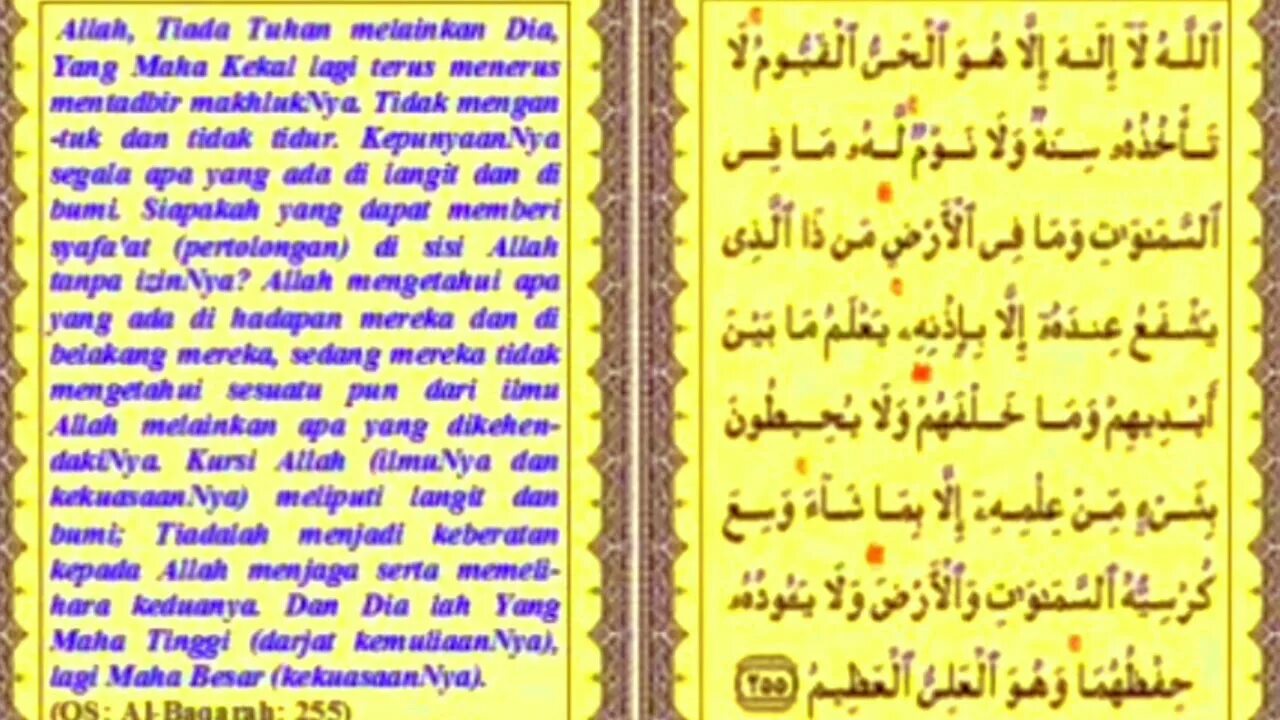 Allah, Tiada Tuhan melainkan Dia,
Yang Maha Kekal lagi terus menerus
mentadbir makhlukNya. Tidak mengan
-tuk dan tidak tidur. KepunyaanNya
segala apa yang ada di langit dan di
bumi. Siapakah yang dapat memberi
syafa'at (pertolongan) di sisi Allah
tanpa izinNya? Allah mengetahui apa
yang ada di hadapan mereka dan di
belakang mereka, sedang mereka tidak
mengetahui sesuatu pun dari ilmu
Allah melainkan apa yang dikehen-
dakiNya. Kursi Allah (ilmuNya dan
kekuasaanNya) meliputi langit dan
bumi; Tiadalah menjadi keberatan
kepada Allah menjaga serta memeli-
hara keduanya. Dan Dia lah Yang
Maha Tinggi (darjat kemuliaanNya),
lagi Maha Besar (kekuasaanNya).
(QS: Al-Baqarah: 255)
ٱللَّهُ لَآ إِلَٰهَ إِلَّا هُوَ ٱلْحَىُّ ٱلْقَيُّومُ ۚ لَا
تَأْخُذُهُۥ سِنَةٌ وَلَا نَوْمٌ ۚ لَّهُۥ مَا فِى
ٱلسَّمَٰوَٰتِ وَمَا فِى ٱلْأَرْضِ ۗ مَن ذَا ٱلَّذِى
يَشْفَعُ عِندَهُۥٓ إِلَّا بِإِذْنِهِۦ ۚ يَعْلَمُ مَا بَيْنَ
أَيْدِيهِمْ وَمَا خَلْفَهُمْ ۖ وَلَا يُحِيطُونَ
بِشَىْءٍ مِّنْ عِلْمِهِۦٓ إِلَّا بِمَا شَآءَ ۚ وَسِعَ
كُرْسِيُّهُ ٱلسَّمَٰوَٰتِ وَٱلْأَرْضَ ۖ وَلَا يَـُٔودُهُۥ
حِفْظُهُمَا ۚ وَهُوَ ٱلْعَلِىُّ ٱلْعَظِيمُ ٢٥٥